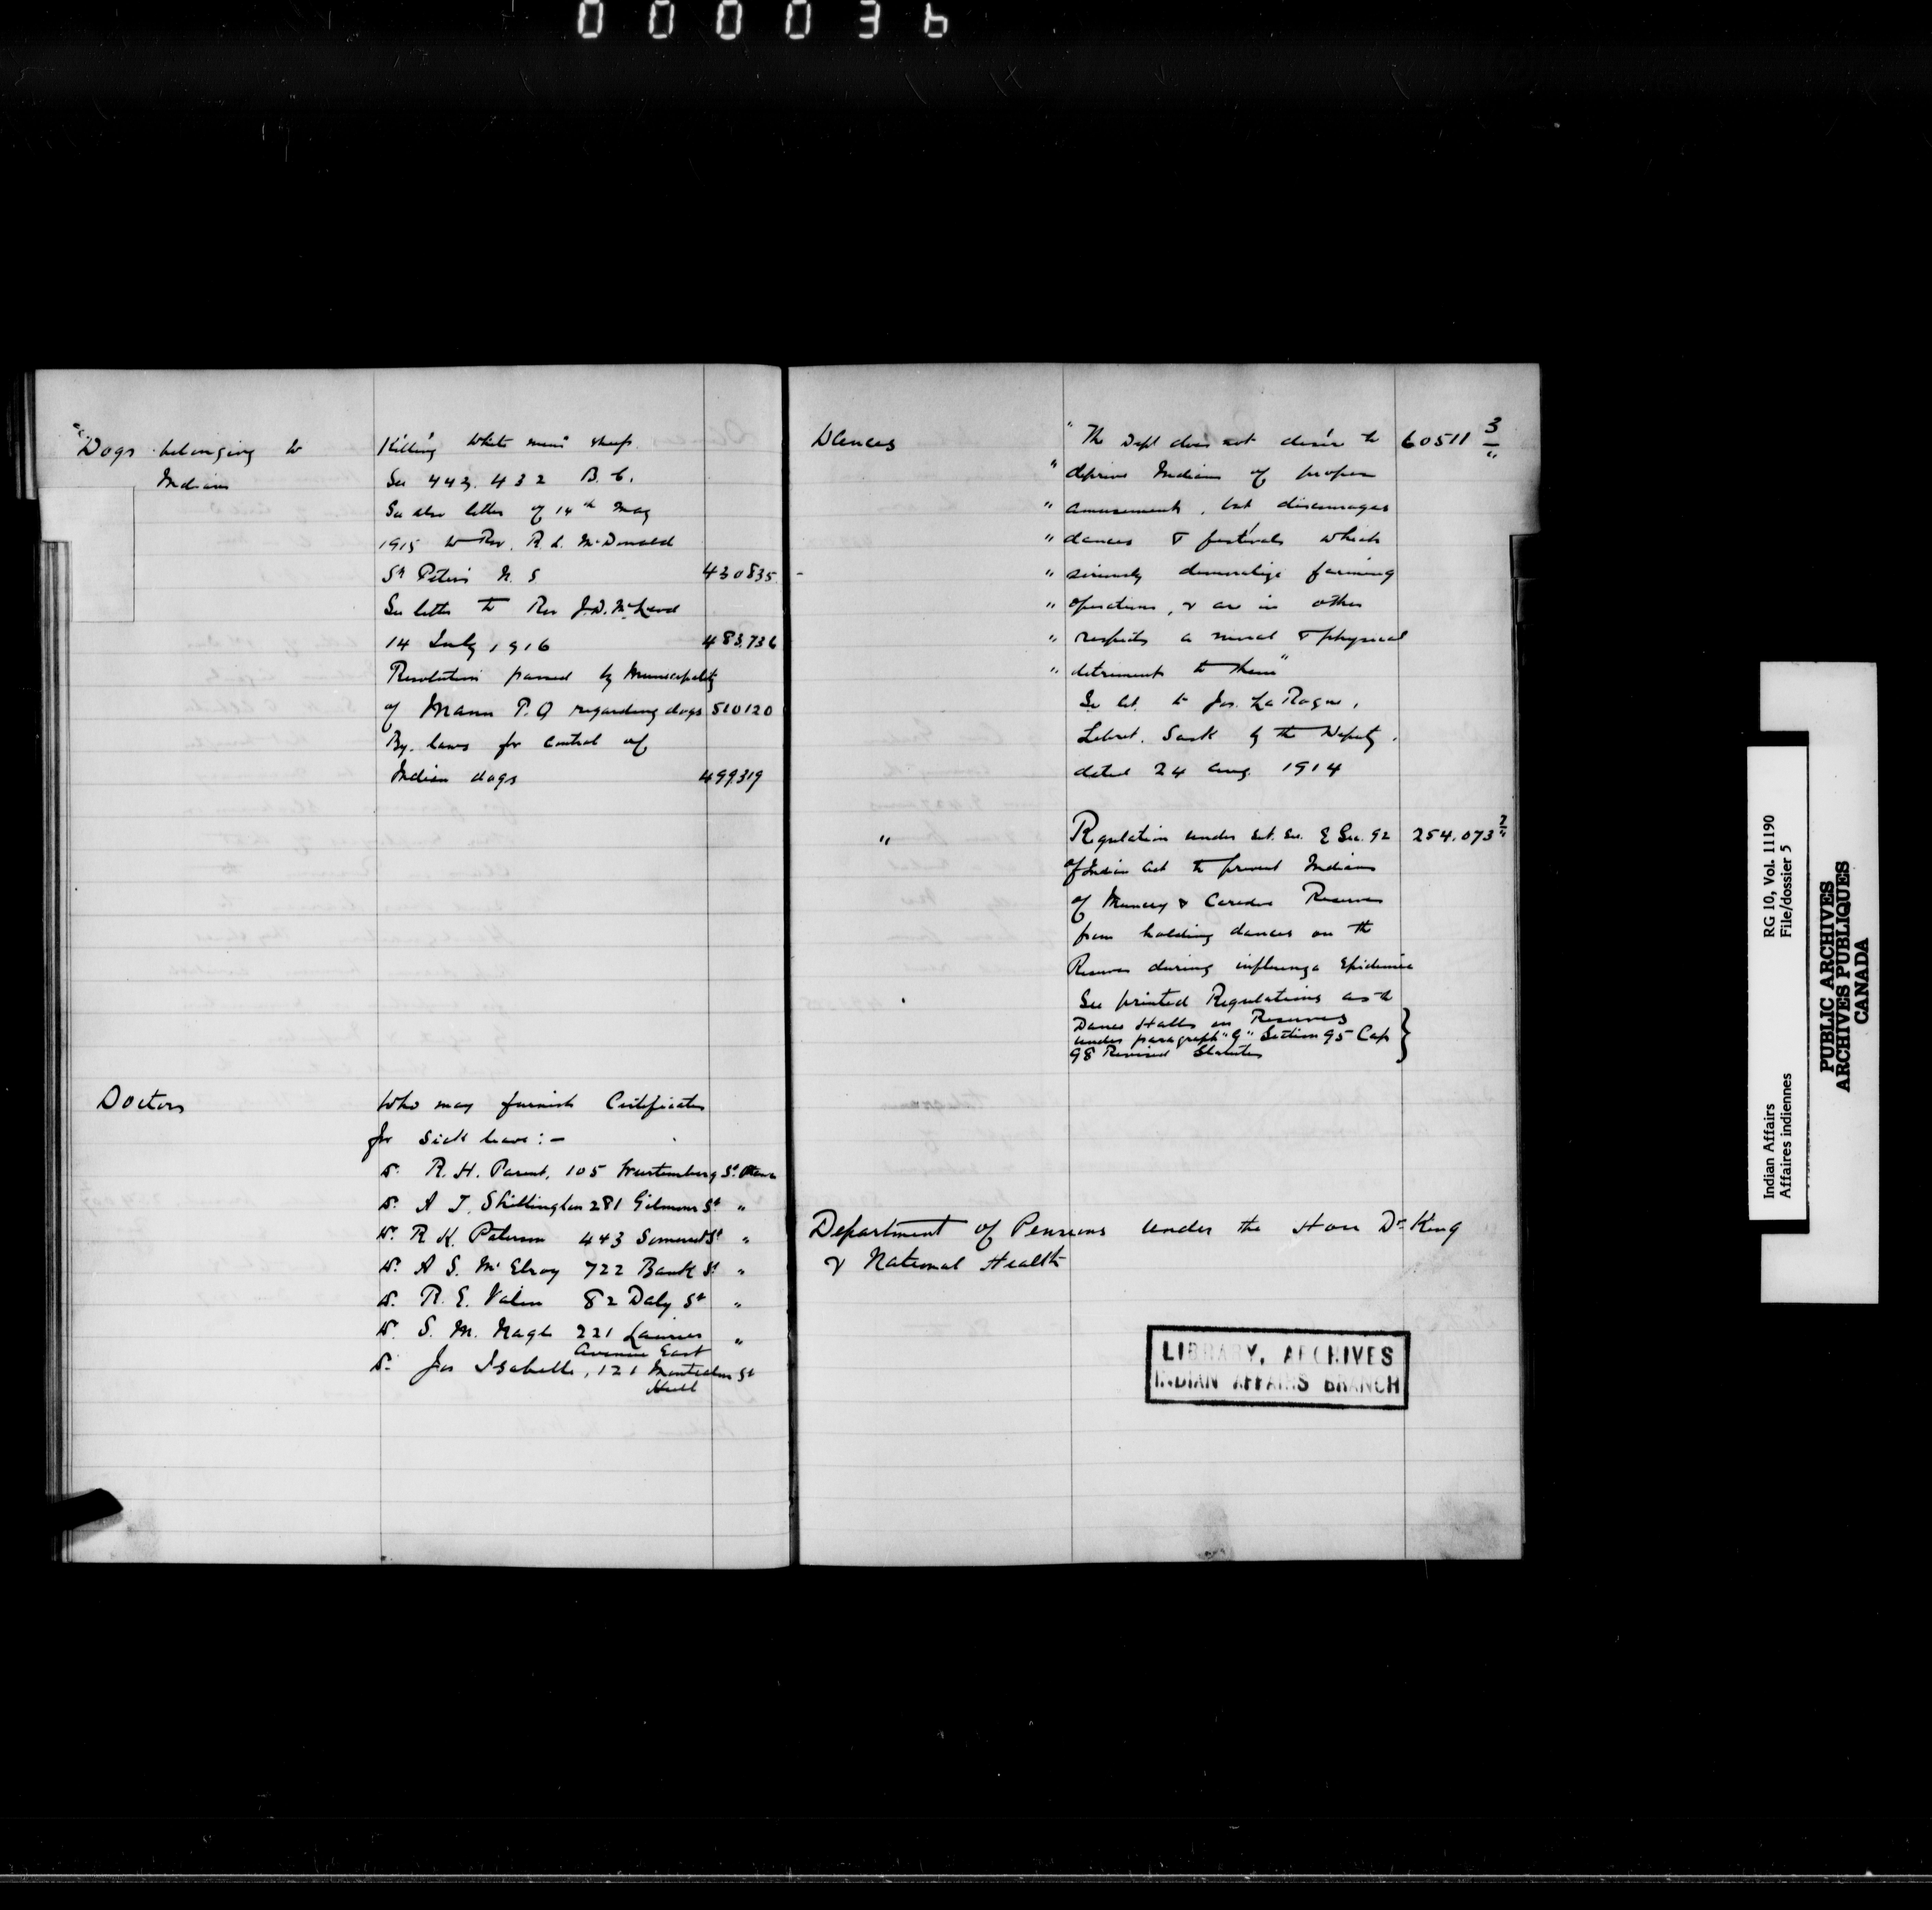 000036
Dogs belonging to
Indians
Killing white men's sheep.
See 443,432 B.C.
See also letter of 14th May
1915 to Rev. R. L. McDonald
St Peters N. S 430835
See letter to Rev J.D. McLeod
14 July 1916 483,736
Resolution passed by Municipality
of Mann P.Q regarding dogs 510120
By. laws for control of
Indian dogs 499319
Doctors
Who may furnish Certificates
for sick leave :-
Dr. R. H. Parent, 105 Wurtemberg St. Ottawa
Dr. A T. Shillington 281 Gilmour St "
Dr. R K. Paterson 443 Somerset St "
Dr. A S. McElroy 722 Bank St "
Dr. R. E. Valin 82 Daly St "
Dr. S. M. Nagle 221 Laurier "
Avenue East
Dr. Jos Isabelle, 121 Montcalm St
Hull
Dances
" The Dept does not desire to 60511 3/"
" deprive Indians of proper
" amusement, but discourages
" dances & festivals which
" seriously demoralize farming
" operations, & are in other
" respects a moral & physical
" detriment to them"
See let. to Jos. LaRoque,
Lebret. Sask by the Deputy.
dated 24 Aug. 1914
" Regulation under Sec. 92 254,073
of Indian Act to prevent Indians
of Muncey & Caradoc Reserves
from holding dances on the
Reserves during influenza Epidemic
See printed Regulations as to
Dance Halls on Reserves
under paragraph "G" Section 95 Cap
98 Revised Statutes
Department of Pensions under the Hon Dr King
& National Health
LIBRARY, ARCHIVES
INDIAN AFFAIRS BRANCH
Indian Affairs RG 10, Vol. 11190
Affaires indiennes File/dossier 5
PUBLIC ARCHIVES
ARCHIVES PUBLIQUES
CANADA